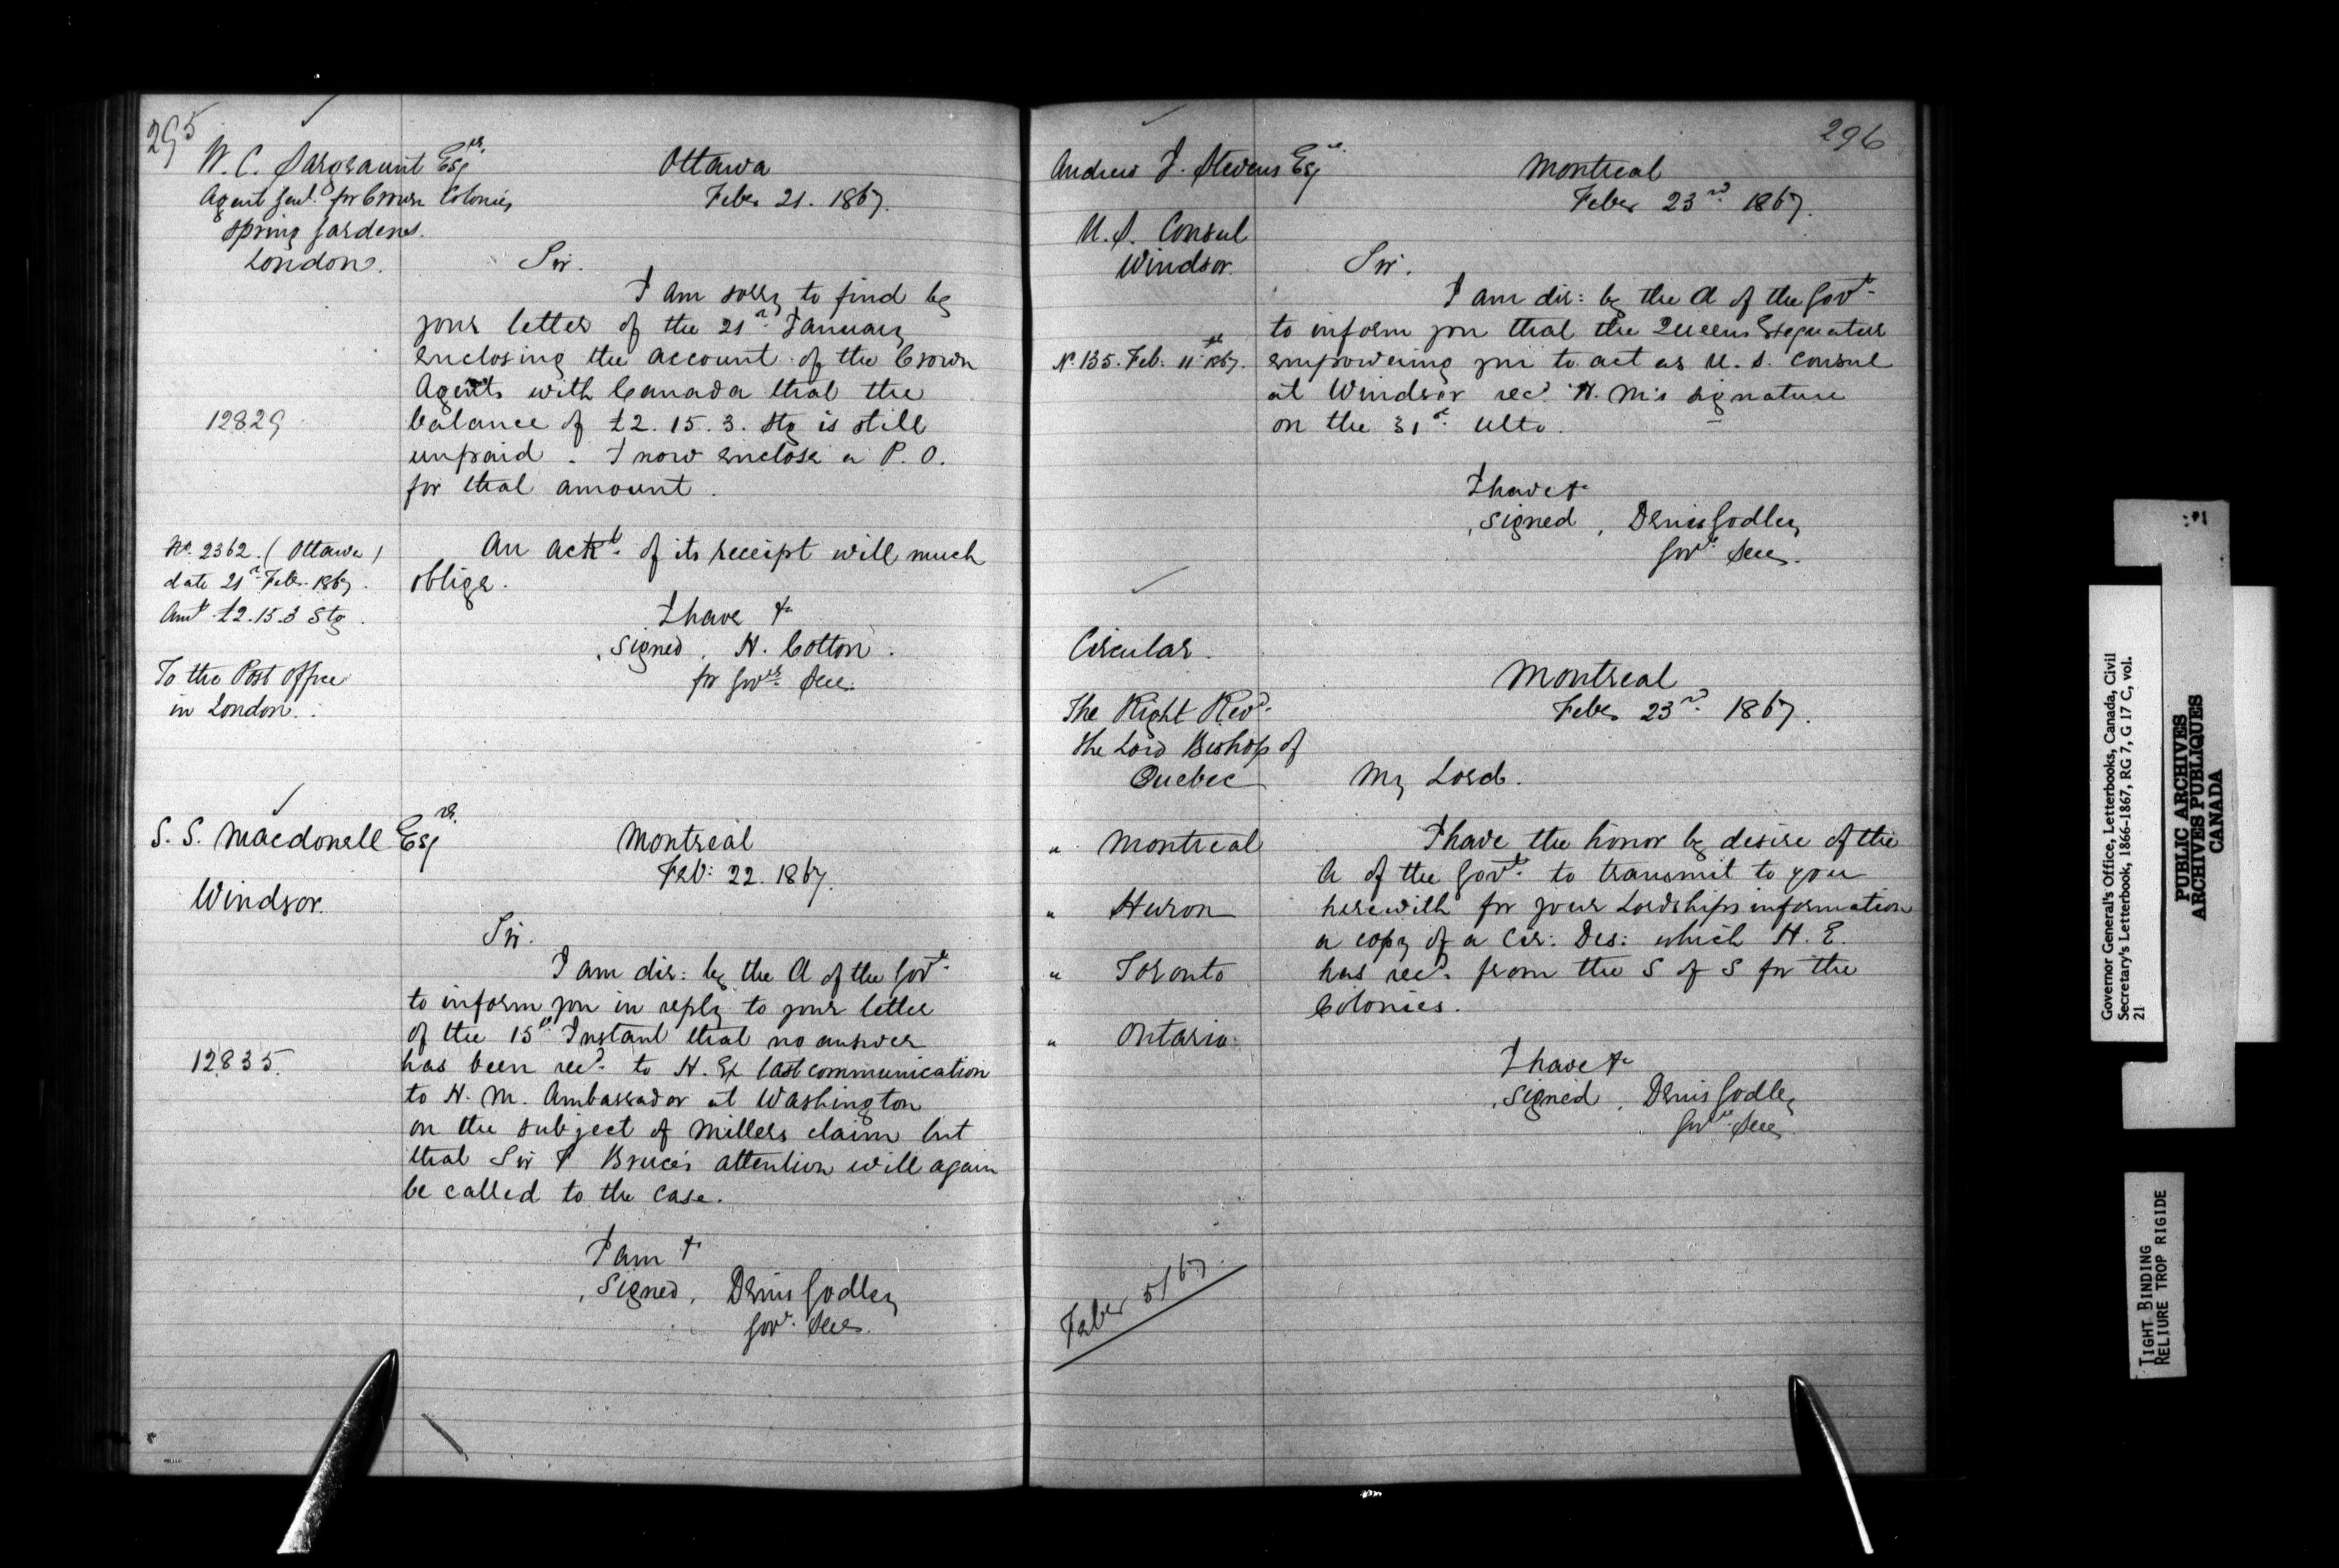 295
W. C. Sargeaunt Esqre.
Agent Genl. for Crown Colonies
Spring Gardens.
London.
Ottawa
Feby 21. 1867.
Sir.
I am sorry to find by
your letter of the 21st January
enclosing the account of the Crown
Agents with Canada that the
12829
balance of £2. 15. 3. Stg is still
unpaid. I now enclose a P. O.
for that amount.
No. 2362. (Ottawa)
date 21st Feby. 1867.
Amt £2.15.3 Stg.
To the Post Office
in London.
An ackt. of its receipt will much
oblige.
I have &c
signed, H. Cotton.
for Govr. Secy.
S. S. Macdonell Esqre.
Windsor.
Montreal
Feb: 22. 1867.
Sir.
I am dir: by the A of the Govt.
to inform you in reply to your letter
of the 15th Instant that no answer
12835.
has been recd. to H. Ex last communication
to H. M. Ambassador at Washington
on the subject of Millers claim but
that Sir F Bruce's attention will again
be called to the case.
I am &
signed, Denis Godley
Govr. Secy.
296
Andrew J. Stevens Esqr.
U. S. Consul
Windsor.
Montreal
Feby 23rd. 1867.
Sir.
I am dir: by the A of the Govt.
to inform you that the Queens Exequatur
No. 135. Feb. 11th 1867.
empowering you to act as U. S. Consul
at Windsor recd. H. M's signature
on the 31st. Ulto.
I have &c
signed, Denis Godley
Govr. Secy.
Circular.
The Right Revd.
The Lord Bishop of
Quebec
" Montreal
" Huron
" Toronto
" Ontario.
Montreal
Feby 23rd. 1867.
My Lord.
I have the honor by desire of the
A of the Govt. to transmit to you
herewith for your Lordships information
a copy of a Cir: Des: which H. E.
has recd. from the S of S for the
Colonies.
I have &c
signed, Denis Godley
Govr. Secy.
5/67.
Governor General's Office, Letterbooks, Canada, Civil
Secretary's Letterbook, 1866-1867, RG 7, G 17 C, vol.
21
PUBLIC ARCHIVES
ARCHIVES PUBLIQUES
CANADA
TIGHT BINDING
RELIURE TROP RIGIDE